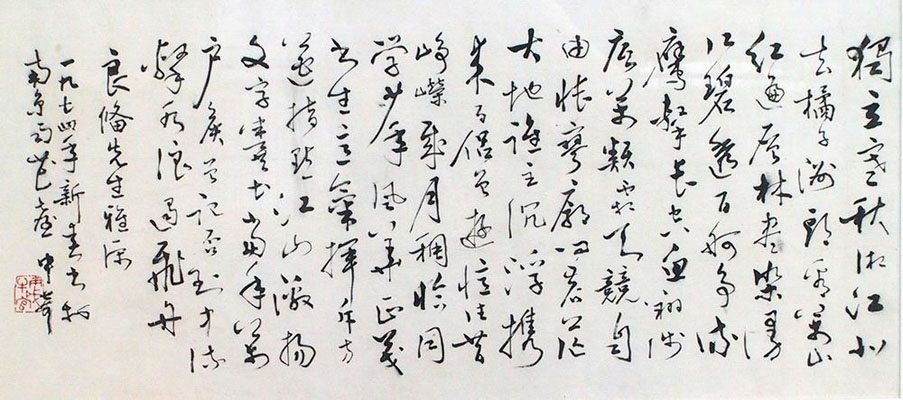 獨立寒秋湘江北
去橘子洲頭看萬山
红遍层林尽染漫
江碧透百舸争流
鷹擊长空鱼翔浅
底万類霜天競自
由怅寥廓问苍茫
大地谁主沉浮携
来百侣曾遊忆往昔
峥嵘歲月稠恰同
学少年风华正茂
书生意氣揮斥方
遒指點江山激揚
文字糞土當年萬
户侯曾记否到中流
擊水浪遏飛舟
良脩先生雅屬
一九七四年新春书於
南京雨花臺